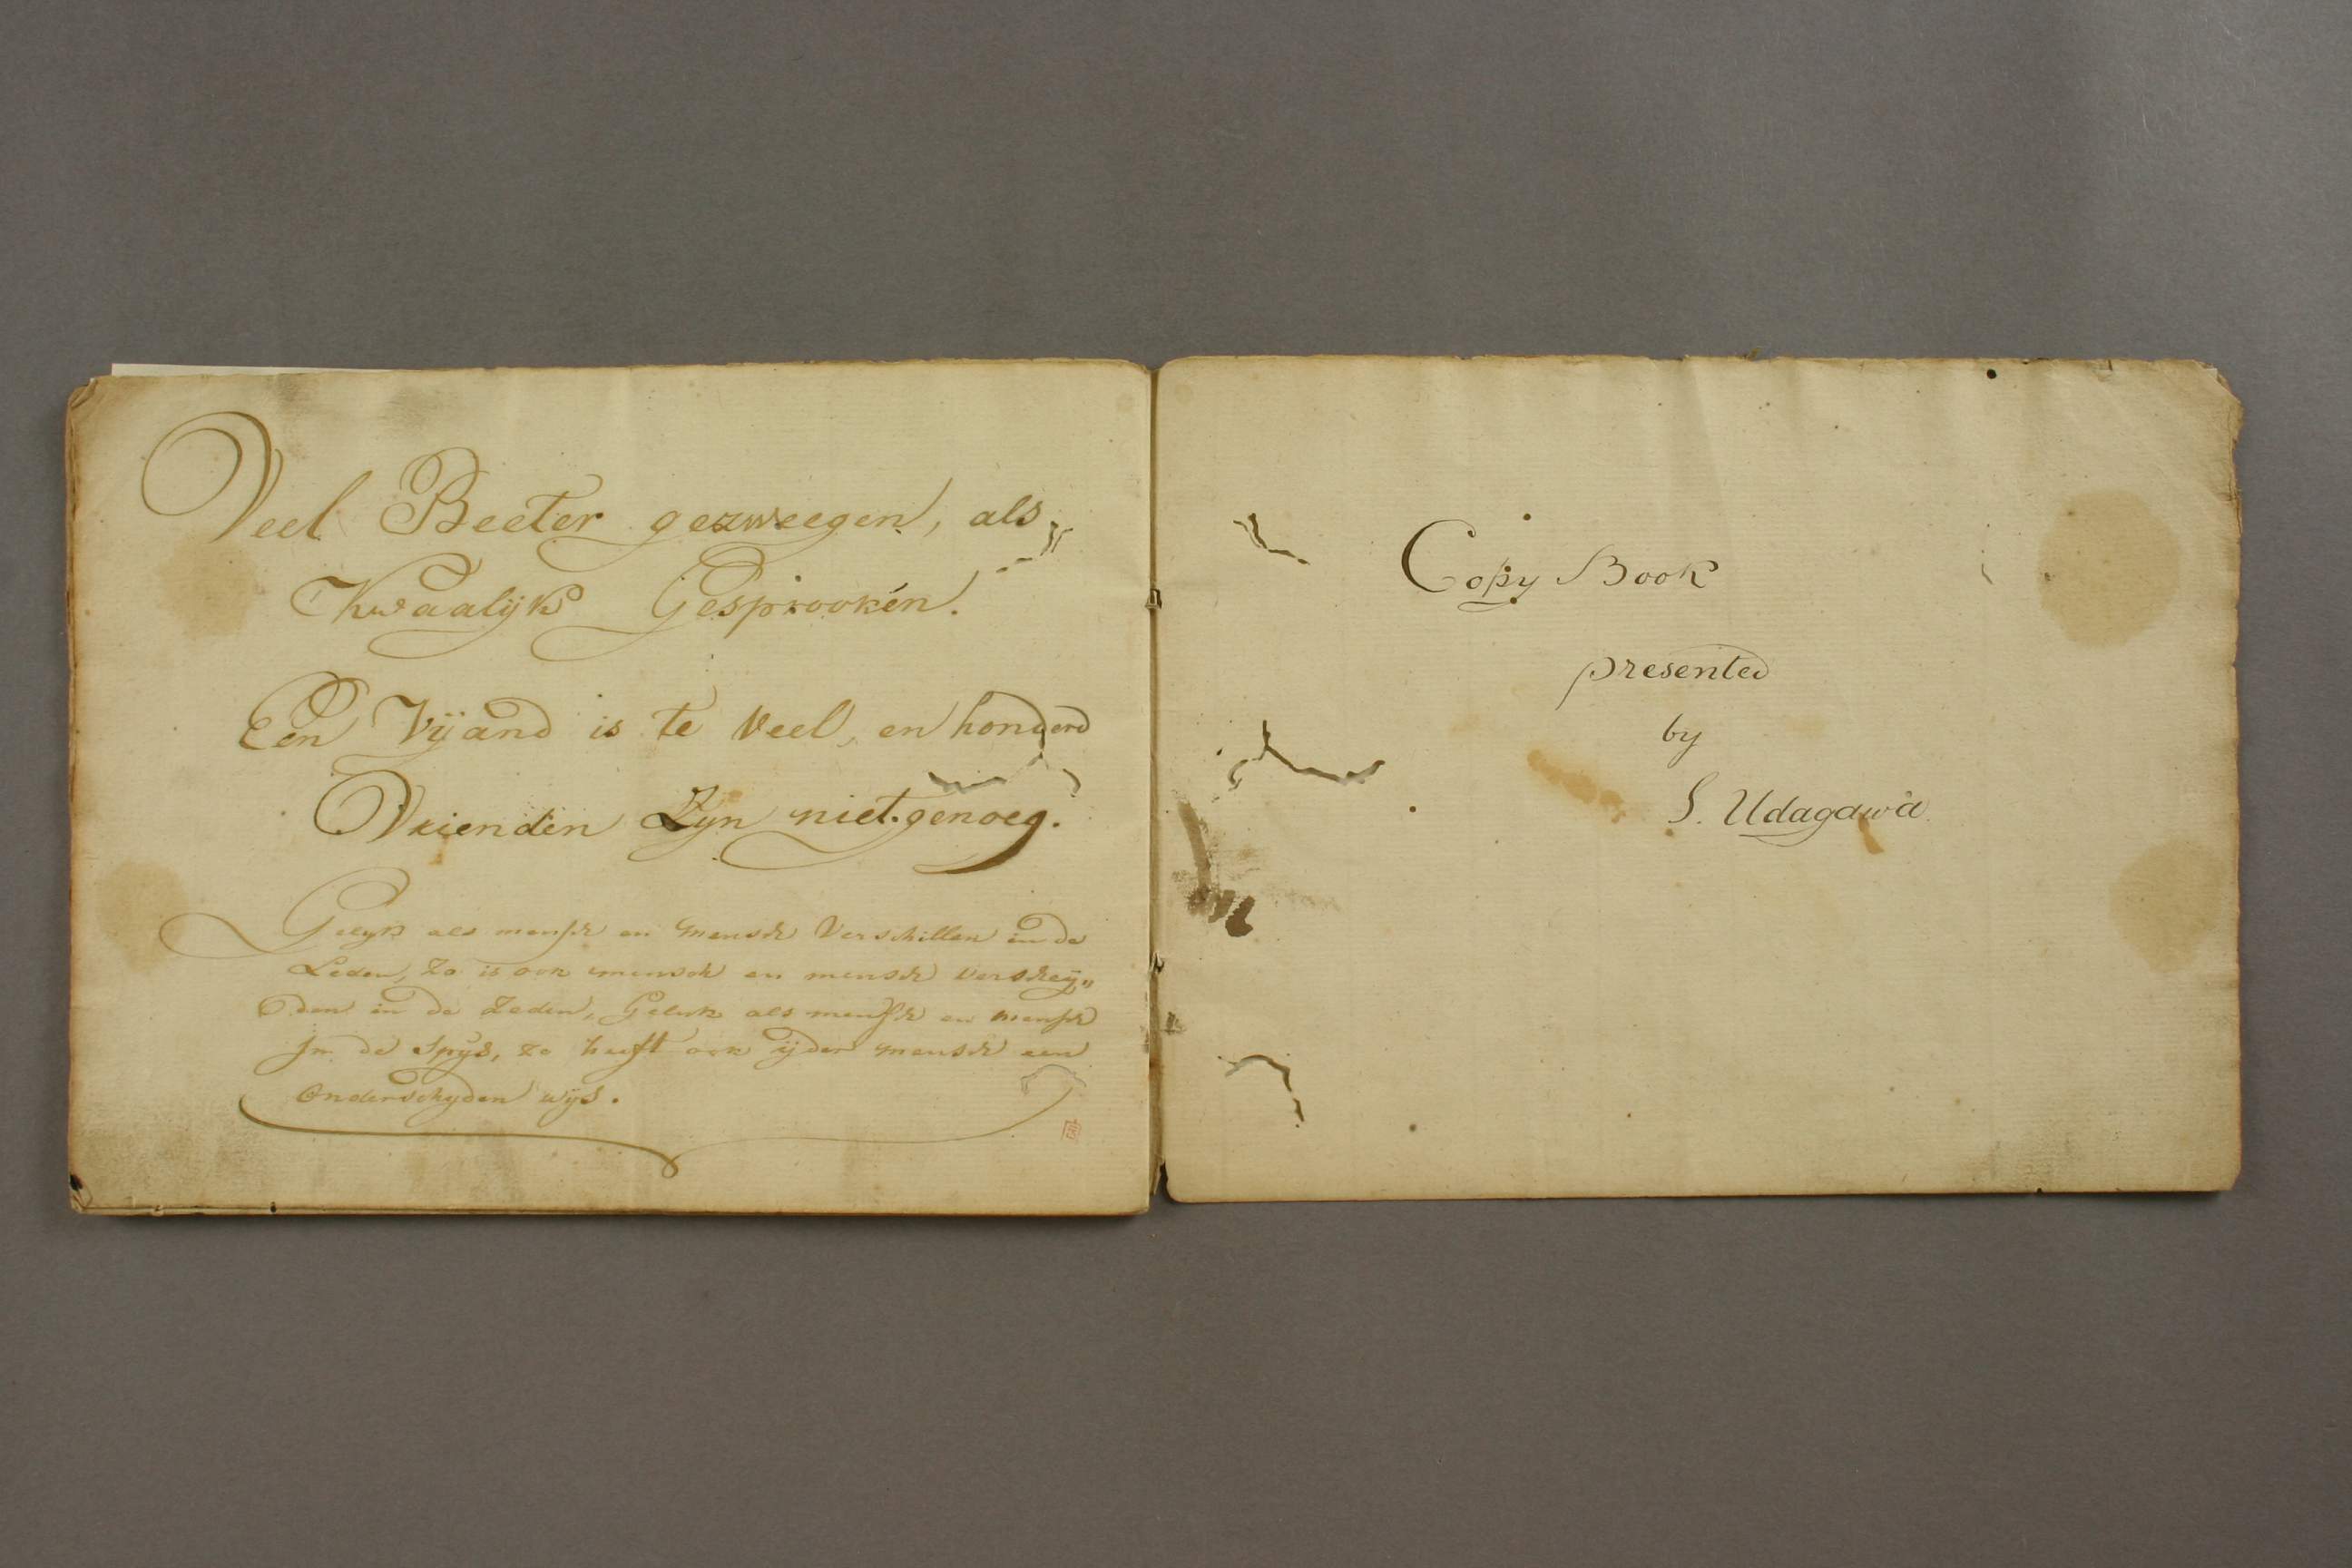 Veel Beeter gezweegen, als
Kwaalijk Gesprooken.
Een Vijand is te Veel, en honderd
Vrienden Zyn niet genoeg.
Gelyk als mensch en mensch Verschillen in de
Leden, Zo is ook mensch en mensch verschey„
den in de Zeden, Geluk als mensch en mensch
In de Spÿs, zo heeft ook ÿder mensch een
Onderschyden wÿs.
Copy Book
presented
by
S. Udagawa